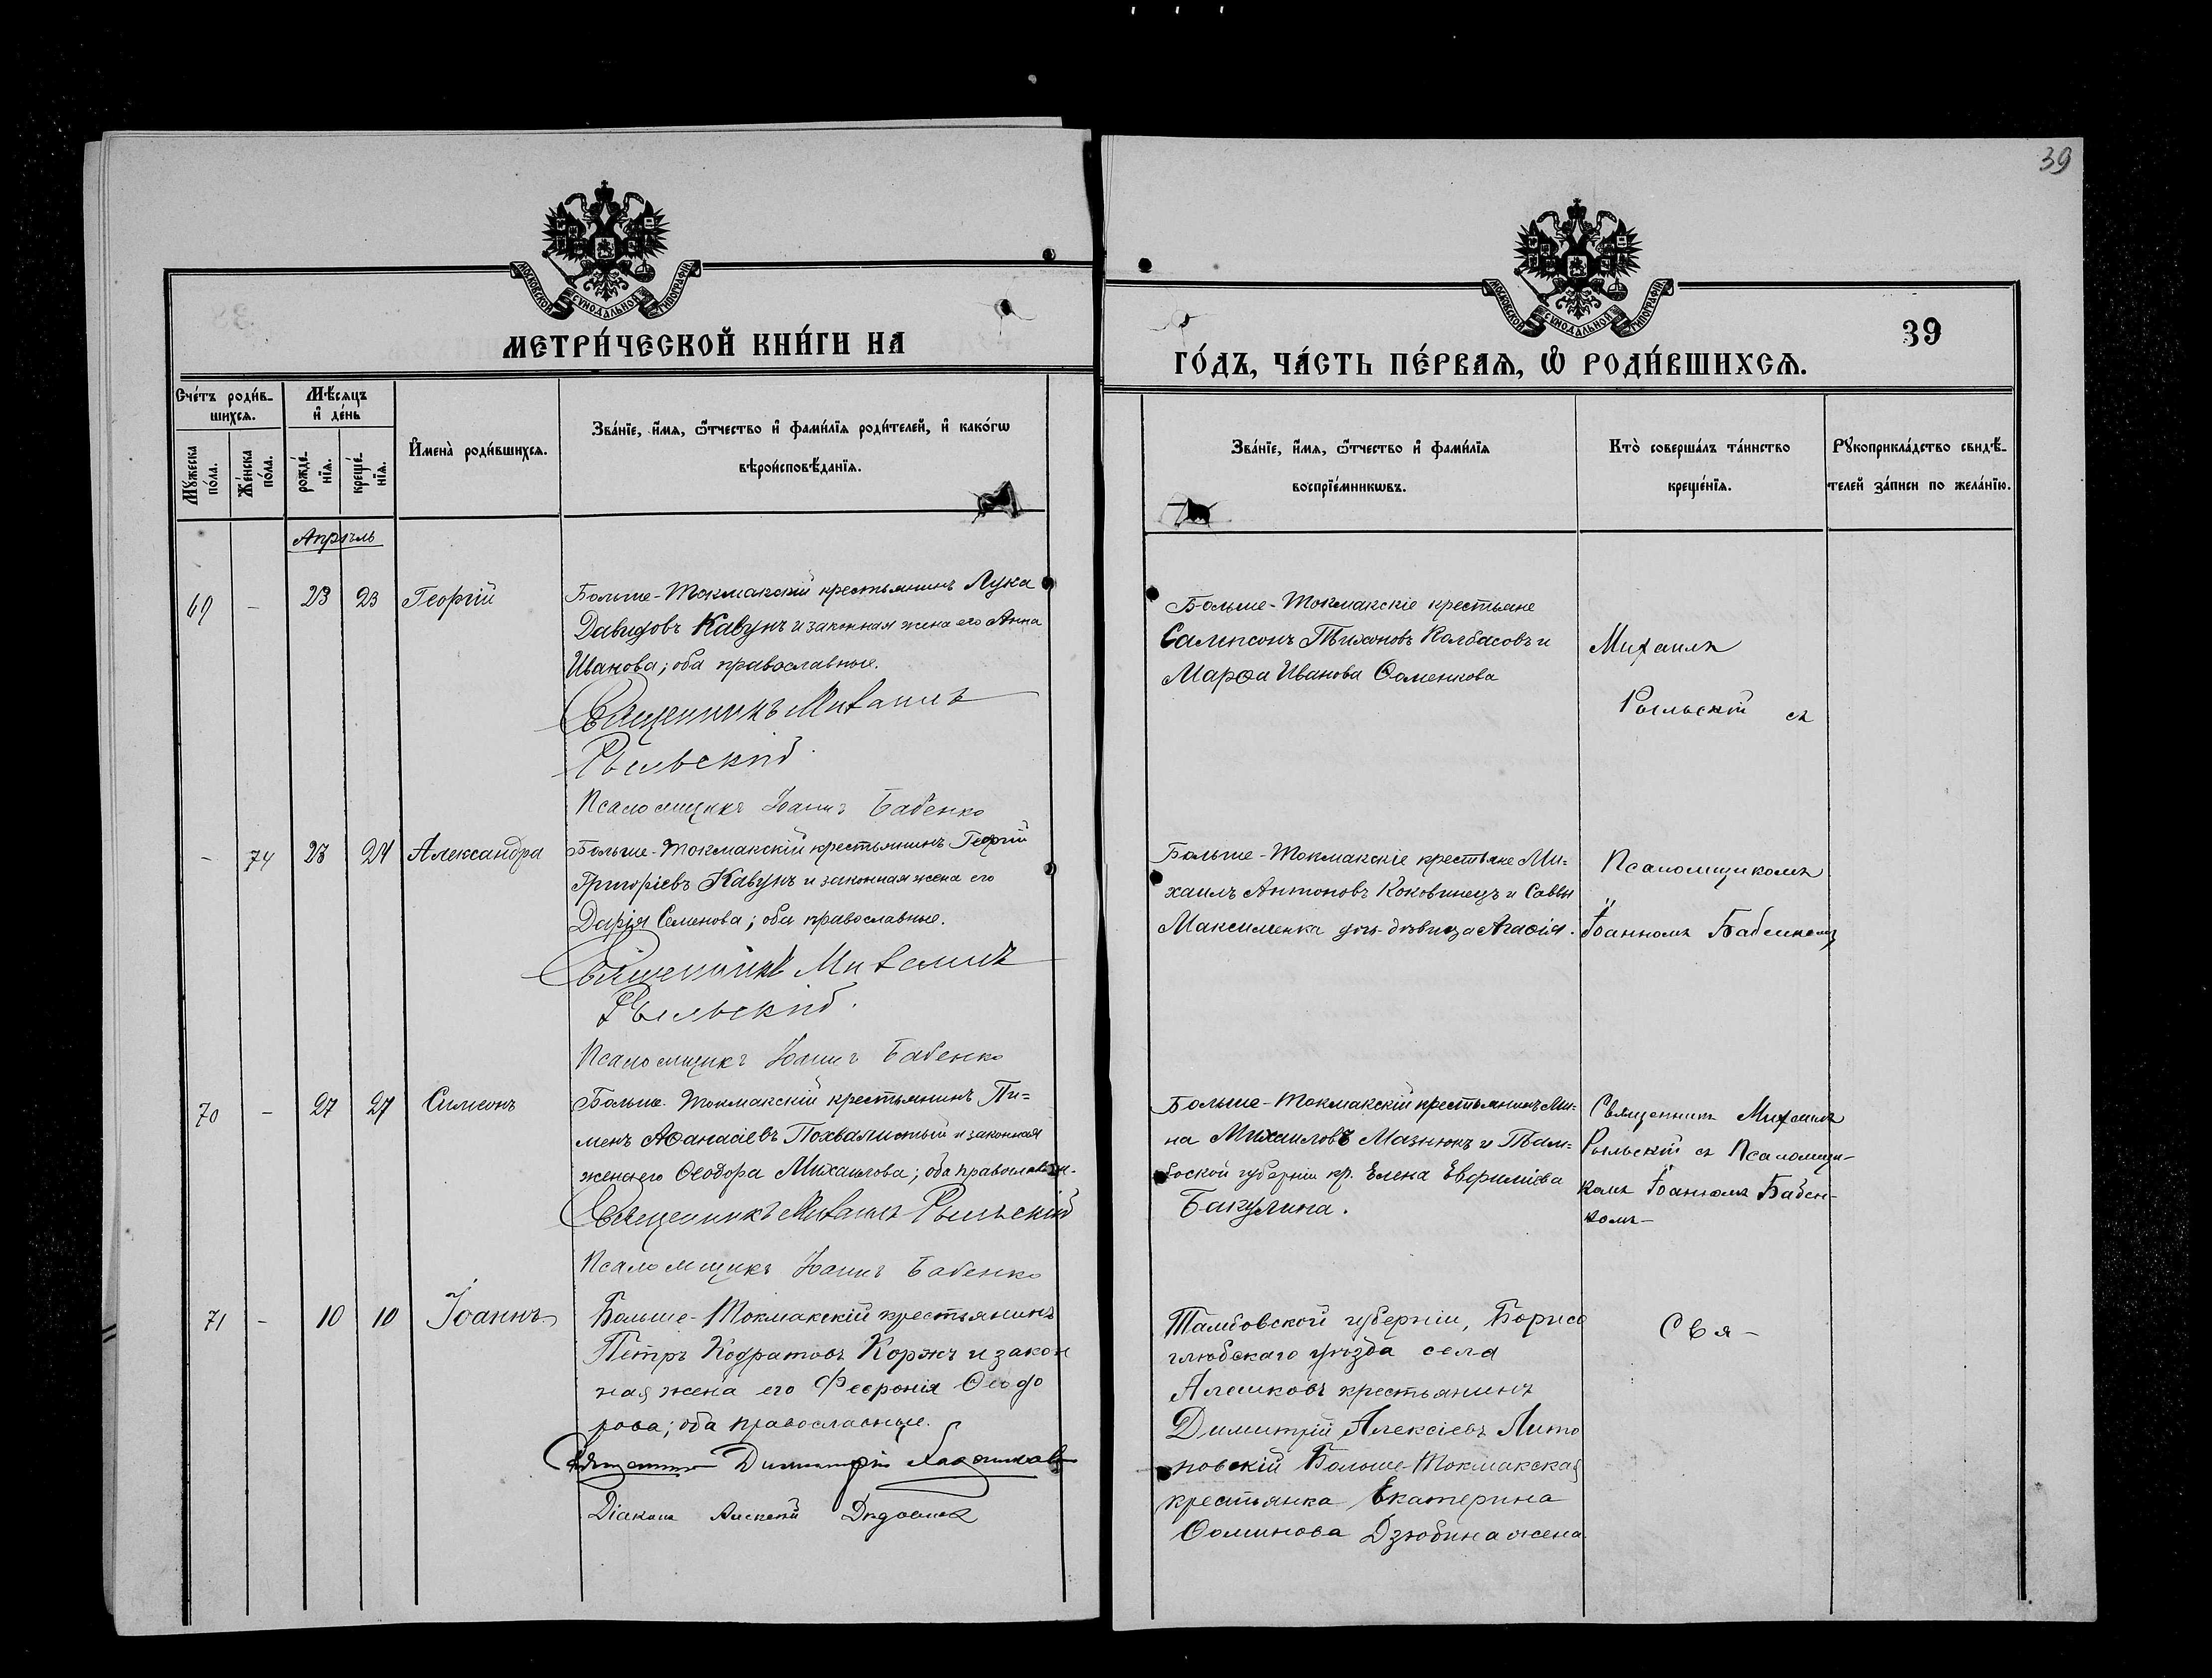 39
МОСКОВСКОЙ СУНОДАЛЬНОЙ ТИПОГРАФІИ
МЕТРИ́ЧЕСКОЙ КНИ́ГИ НА
Сче́тъ роди́в-
шихся.
Мѣ́сяцъ
и҆ де́нь
Му́жеска
по́ла.
Же́нска
по́ла.
рожде́-
нія.
креще́-
нія.
И҆мена̀ роди́вшихся.
Зва́ніе, и҆́мя, ѻ҆́тчество и҆ фами́лія роди́телей, и҆ како́гѡ
вѣроисповѣ́данія.
Апрѣль
69 - 23 23 Георгій
Больше-Токмакскій крестьянинъ Лука
Давидовъ Кавунъ и законная жена его Анна
Иванова; оба православные.
Священникъ Михаилъ
Рыльскій.
Псаломщикъ Іоаннъ Бабенко
- 74 23 24 Александра
Больше-Токмакскій крестьянинъ Георгій
Григоріевъ Кавунъ и законная жена его
Дарія Семенова; оба православные.
Священникъ Михаилъ
Рыльскій.
Псаломщикъ Іоаннъ Бабенко
70 - 27 27 Симеонъ
Больше-Токмакскій крестьянинъ Пи=
менъ Аѳанасіевъ Похвалитый и законная
жена его Ѳеодора Михаилова; оба православн-
Священникъ Михаилъ Рыльскій
Псаломщикъ Іоаннъ Бабенко
71 - 10 10 Іоаннъ
Больше-Токмакскій крестьянинъ
Петръ Кодратовъ Коржъ и закон
ная жена его Феѳронія Ѳеодо
рова; оба православные.
Священникъ Димитрій
Діаконъ Алексій
МОСКОВСКОЙ СУНОДАЛЬНОЙ ТИПОГРАФІИ
ГО́ДЪ, ЧА́СТЬ ПЕ́РВАЯ, Ѡ҆ РОДИ́ВШИХСЯ.
39
Зва́ніе, и҆́мя, ѻ҆́тчество и҆ фами́лія
воспріе́мникѡвъ.
Кто̀ соверша́лъ та́инство
креще́нія.
Рукоприкла́дство свидѣ́-
телей за́писи по жела́нію.
Больше-Токмакскіе крестьяне
Сампсонъ Тихоновъ Колбасовъ и
Марѳа Иванова Ѳоменкова
Михаилъ
Рыльскій съ
Больше-Токмакскіе крестьяне Ми=
хаилъ Антоновъ Коковинецъ и Саввы
Максименка дочь-дѣвица Агаѳія.
Псаломщикомъ
Іоанномъ Бабенкомъ
Больше-Токмакскій крестьянинъ Ми=
на Михаиловъ Мазнюкъ и Там=
бовской губерніи кр. Елена Евфиміева
Бакулина.
Священникъ Михаилъ
Рыльскій съ Псаломщи-
комъ Іоанномъ Бабен-
комъ-
Тамбовской губерніи, Борисо
глюбскаго уѣзда села
Алешковъ крестьянинъ
Димитрій Алексіевъ Лито
новскій Больше-Токмакская
крестьянка Екатерина
Ѳоминова Дзюбина жена
Свя-